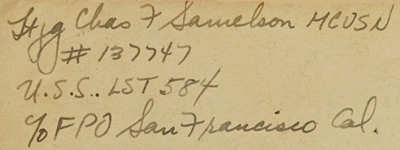 Ltjg Chas F Samelson MCUSN
# 137747
U.S.S. LST 584
c/o FPO San Francisco Cal.